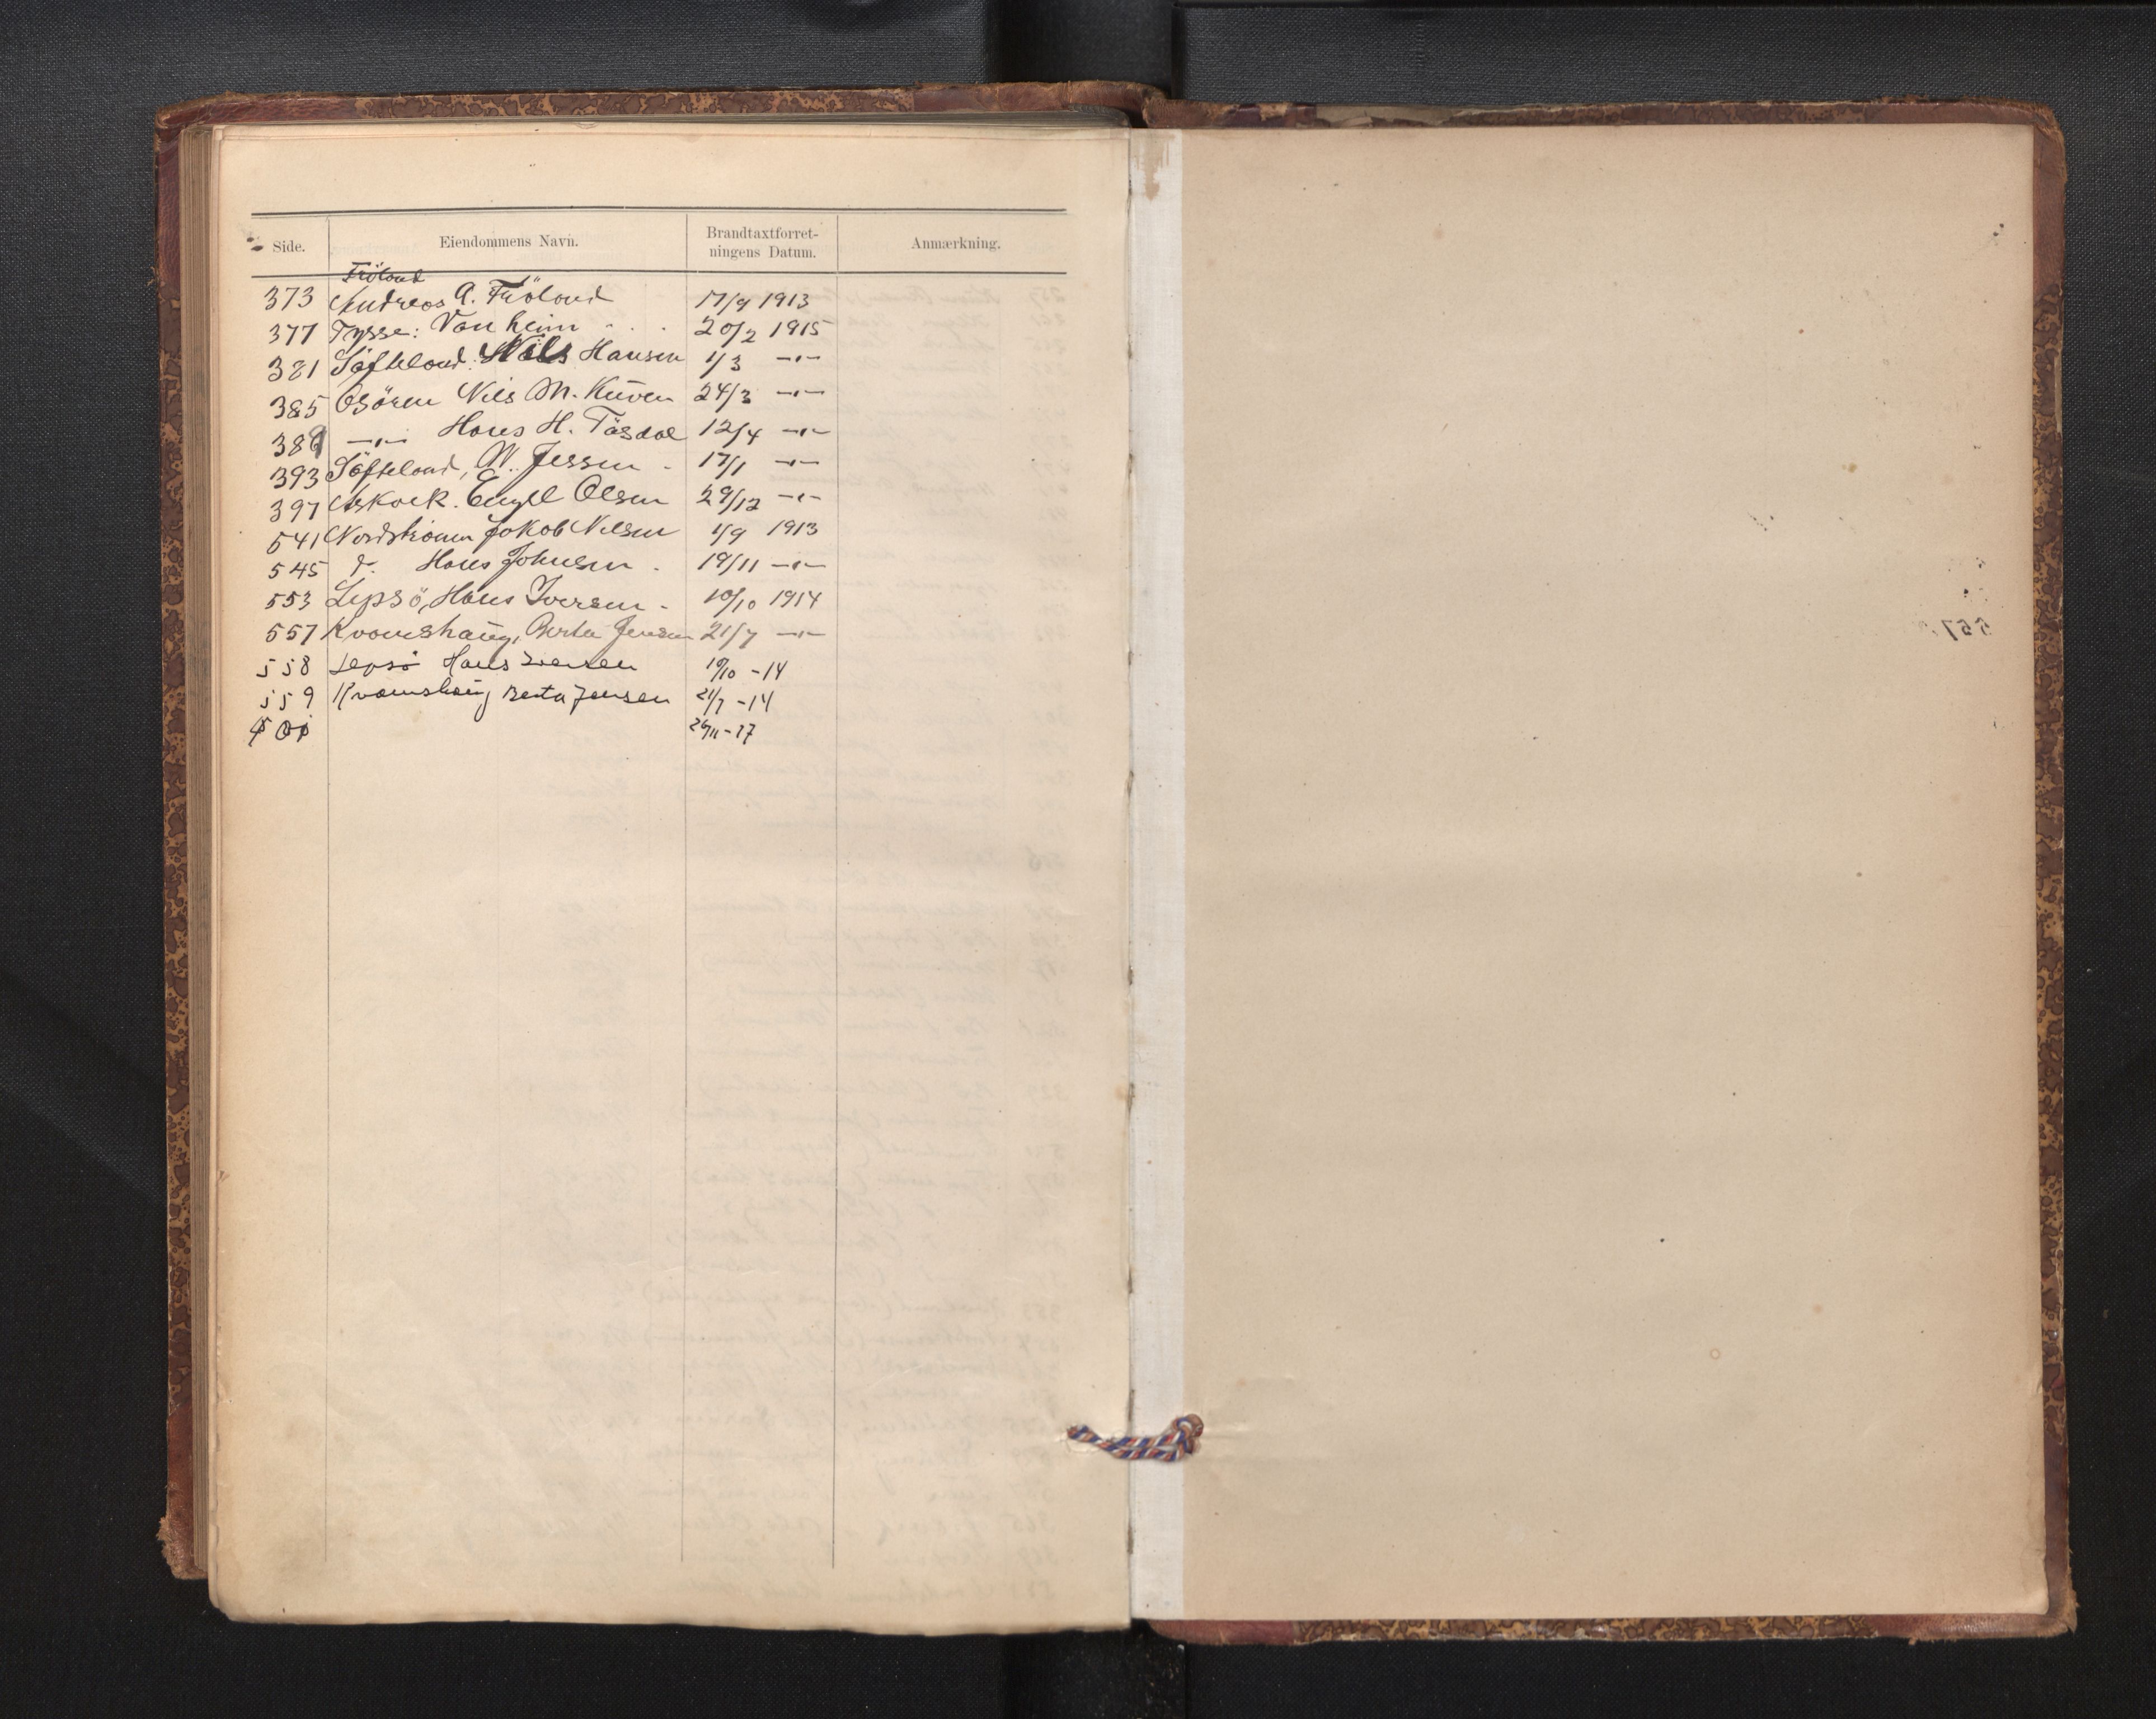 Side. Eiendommens Navn. Brandtaxtforret-
ningens Datum. Anmærkning.
Fröland
373 Andreas A. Fröland 17/9 1913
377 Tysse: Van heim - . . 20/2 1915
381 Söfteland: Nils Hansen 1/3 -"-
385 Osören Nils M. Kuven 24/3 -"-
389 -"- Hans H. Tösdal 12/4 -"-
393 Söfteland, M. Jessen - 17/1 -"-
397 Askvik. Engel Olsen 29/12 -"-
541 Nordstrønen Jakob Nilsen 1/9 1913
545 d. Hans Johnsen - 19/11 -"-
553 Lepsö, Hans Iversen - 10/10 1914
557 Kvamshaug, Berta Jensen 21/7 -"-
558 Lepsö Hans Iversen 10/10 -14
559 Kvamshaug Berta Jensen 21/7 -14
26/11-17
557